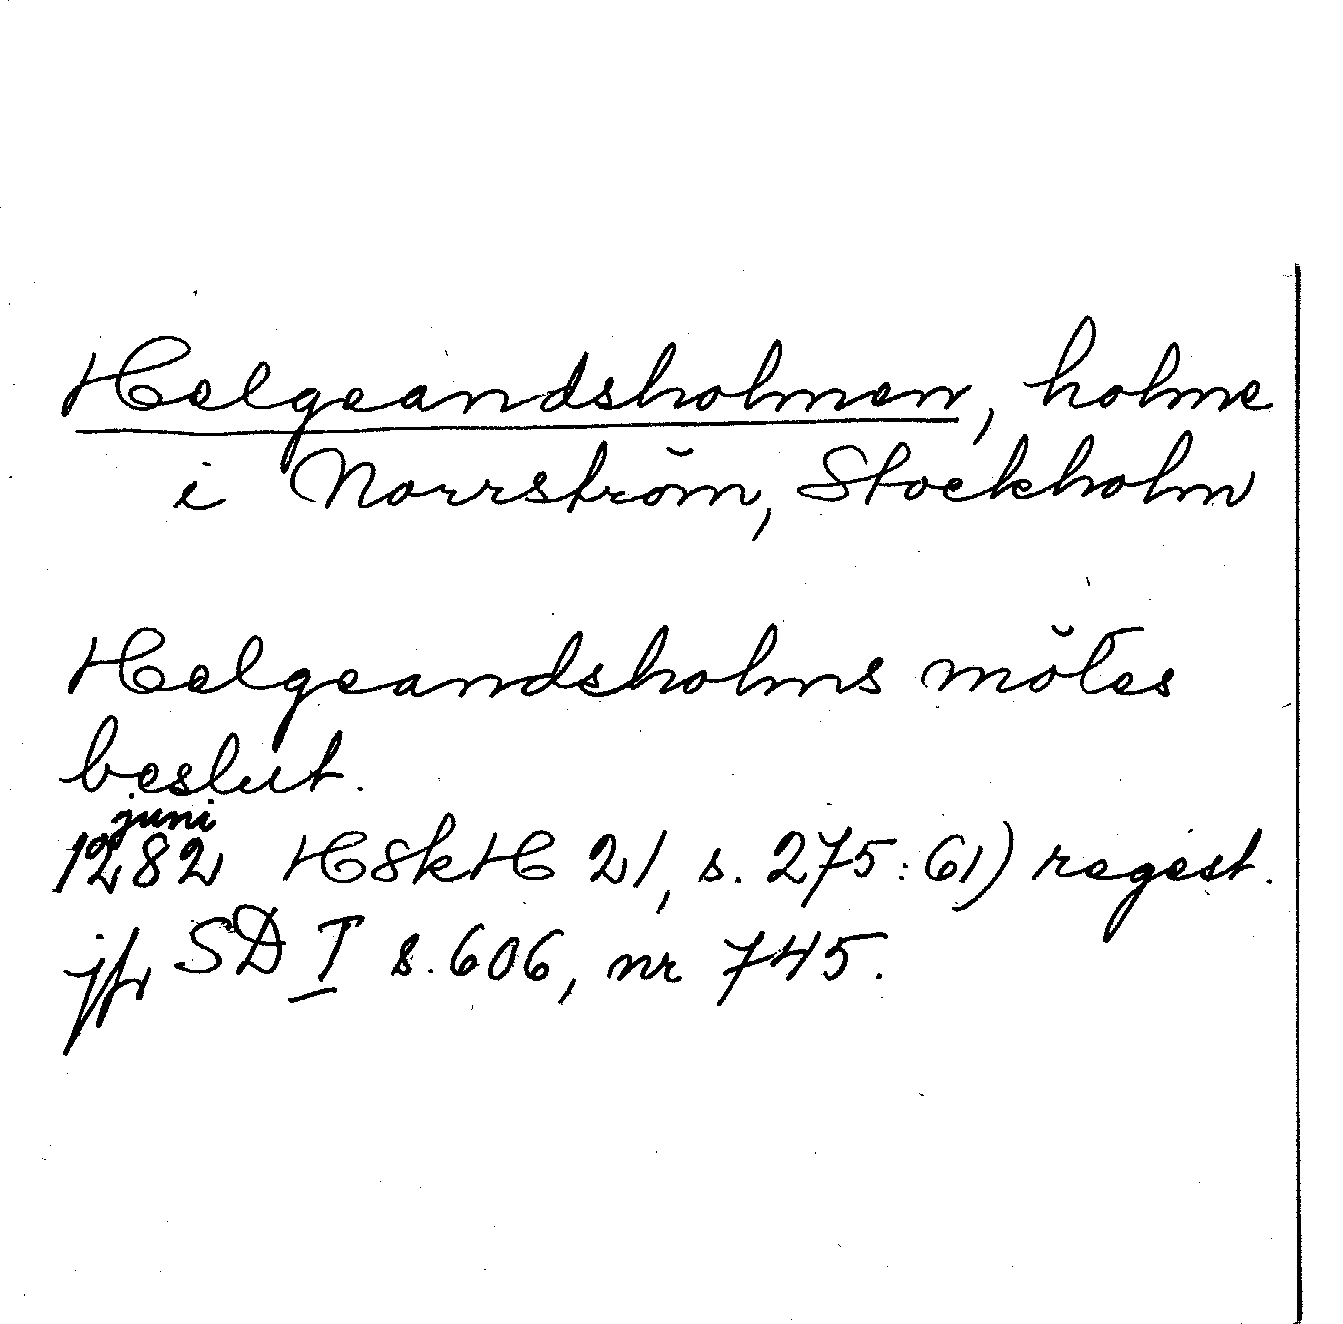 Helgeandsholmen, holme
i Norrström, Stockholm
Helgeandsholms mötes
beslut.
juni
1282 HSkH 21, s. 275:61) regest.
jfr SD I s. 606, nr 745.